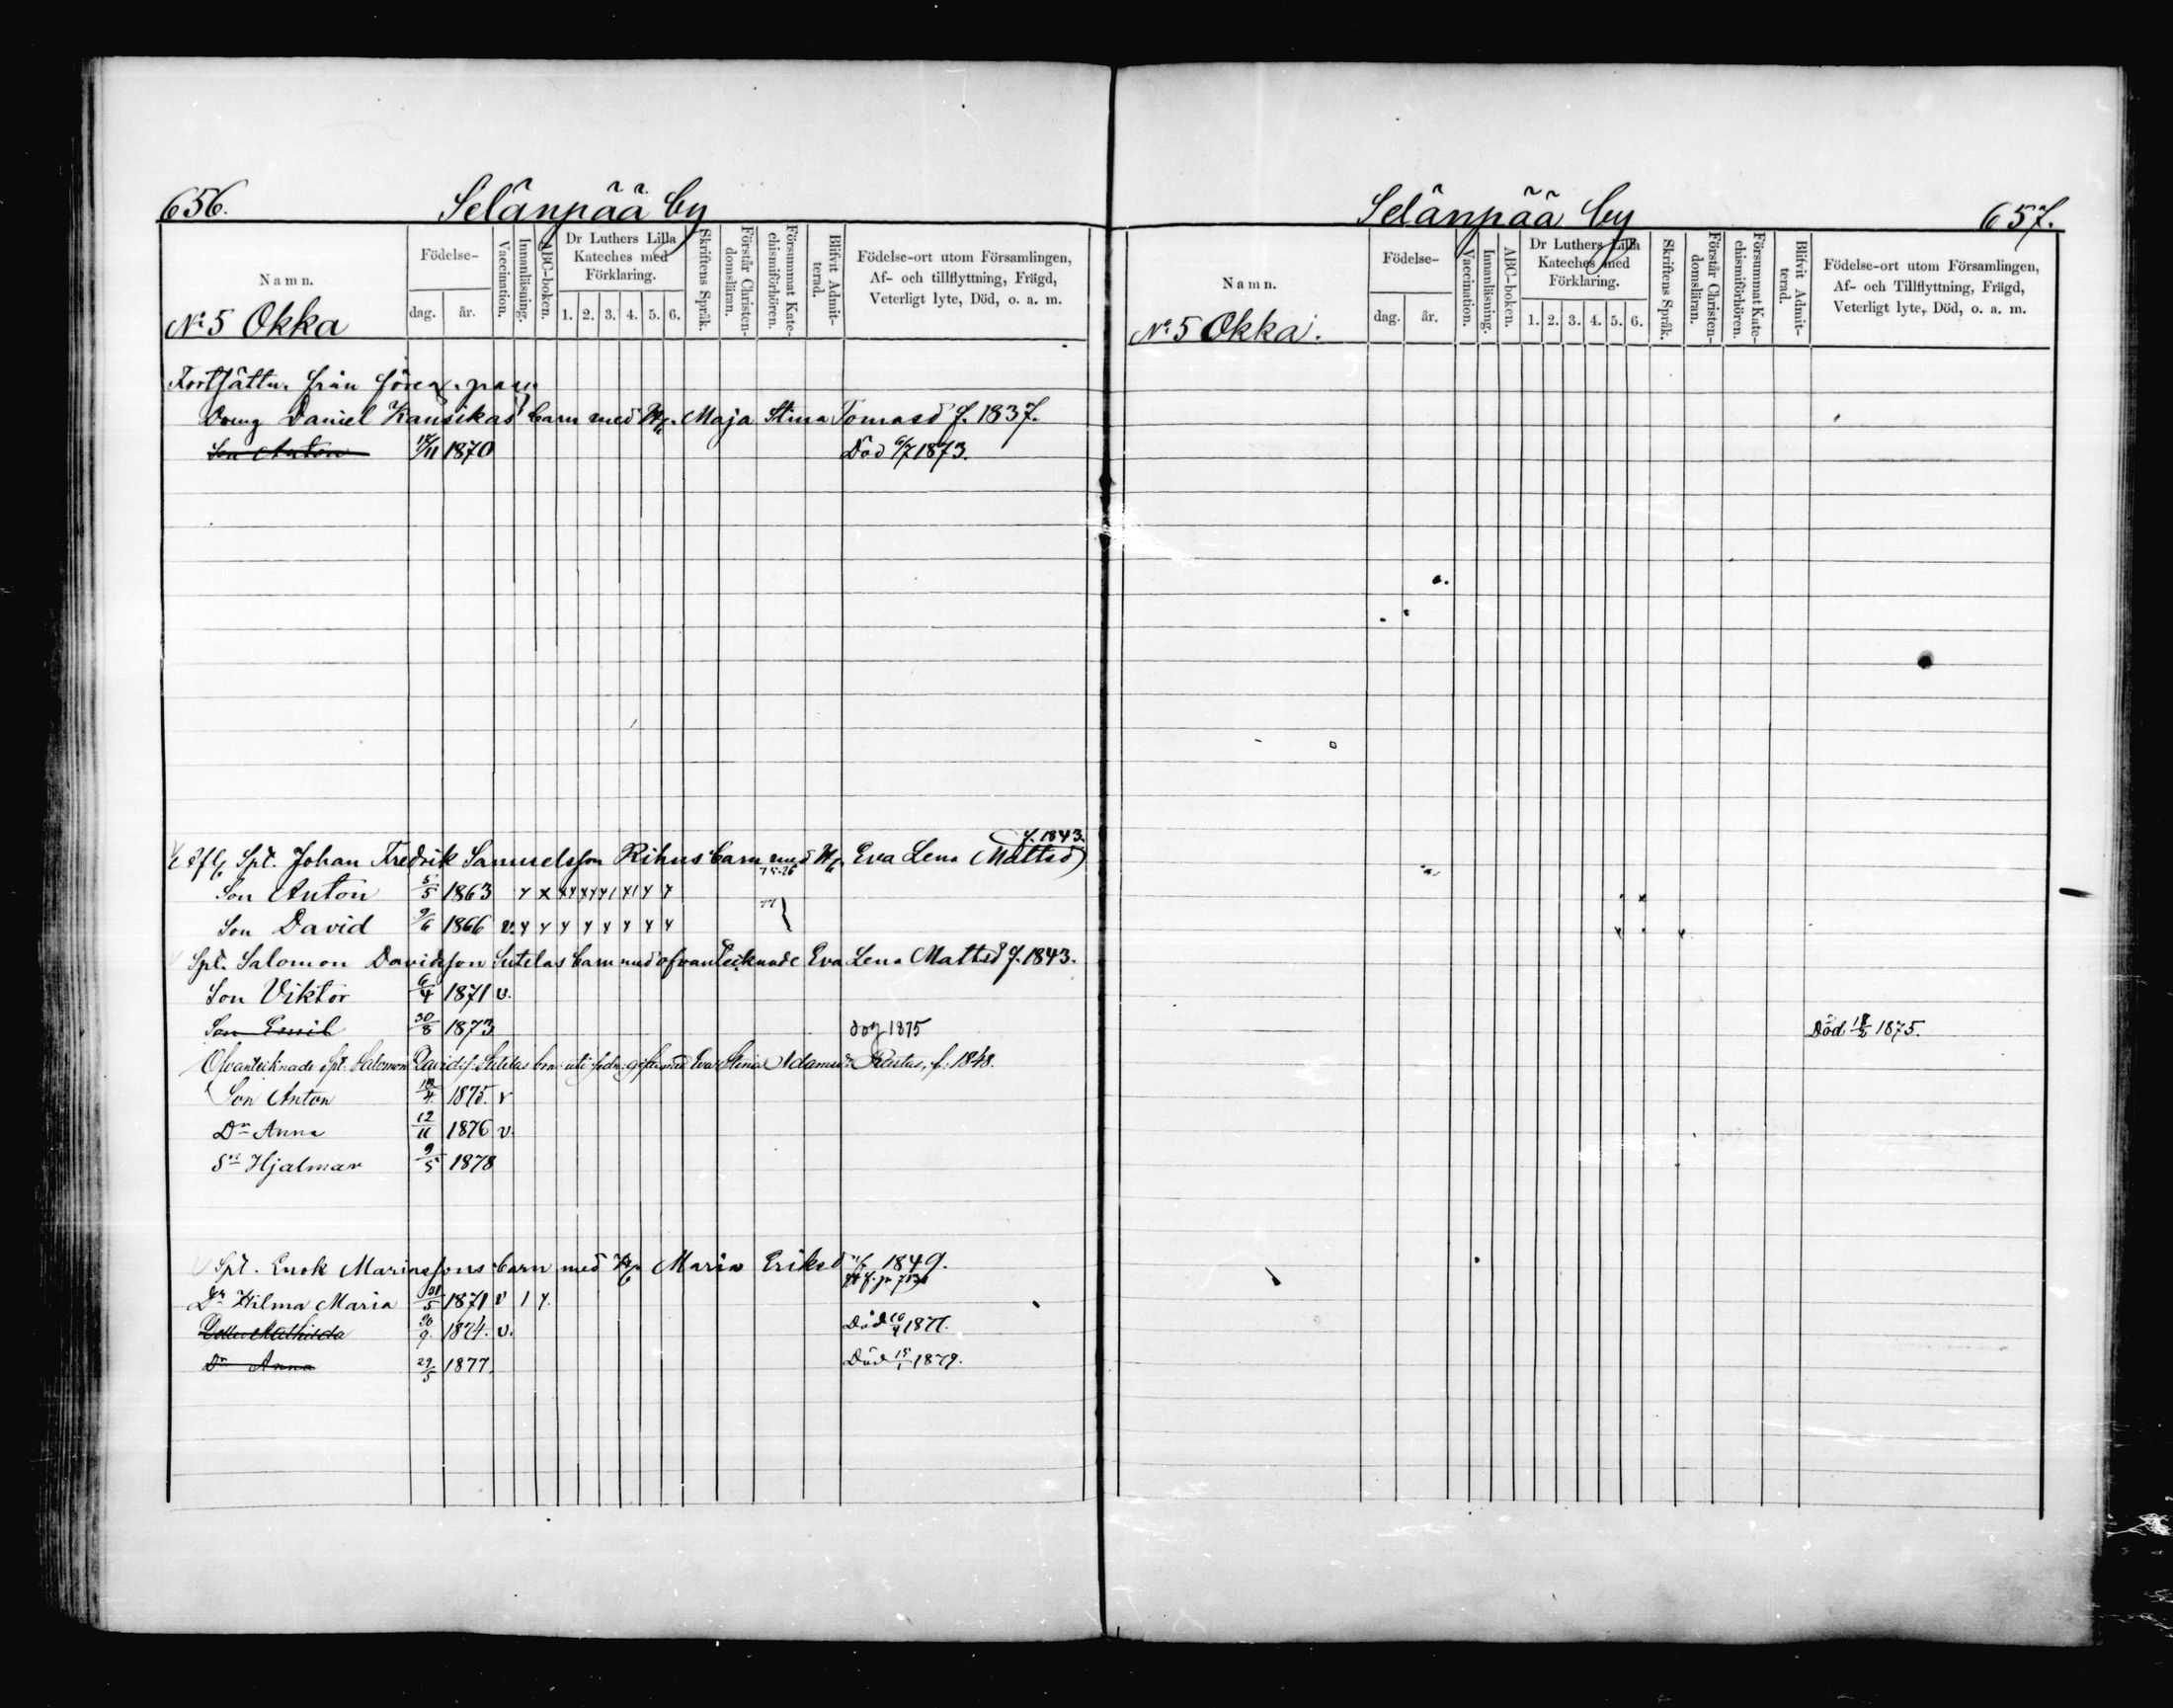 656.
Selänpää by
Namn.
Födelse-
dag. år.
Vaccination.
Innanläsning.
ABC-boken.
Dr Luthers Lilla Kateches med Förklaring.
1. 2. 3. 4. 5. 6.
Skriftens Språk.
Förstår Christen-domsläran.
Försummat Kate-chismiförhören.
Blifvit Admit-terad.
Födelse-ort utom Församlingen,
Af- och tillflyttning, Frägd,
Veterligt lyte, Död, o. a. m.
No 5 Okka
Fortsättn. från föreg. pag.
Dreng Daniel Kansikas barn med Maja Stina Tomasd f. 1837.
Son Anton 1870 Död 6/7 1873.
f. 1843.
Spt. Johan Fredrik Samuelsson Rihus barn med Eva Lena Mattsd
75-76
Son Anton 5/5 1863
Son David 9/6 1866 v. 77
Spt. Salomon Davidsson Sutelas barn med ofvantecknade Eva Lena Mattsd f. 1843.
Son Viktor 6/4 1871 v.
Son Emil 30/8 1873 dog 1875
Ofvantecknade Spt. Salomon Davidss. Sutelas barn uti sedn. gifte med Eva Stina Adamsdr f. 1848.
Son Anton 1875. v
Dr Anna 12/11 1876 v.
Sn Hjalmar 9/5 1878
Spt. Enok Mariassons barn med Maria Eriksd f. 1849.
Dr Hilma Maria 31/5 1871 v
Dotter Mathilda 20/9 1874. v. Död 10/4 1877.
Dr Anna 29/5 1877. Död 15/1 1879.
Selänpää by
657.
Namn.
Födelse-
dag. år.
Vaccination.
Innanläsning.
ABC-boken.
Dr Luthers Lilla Kateches med Förklaring.
1. 2. 3. 4. 5. 6.
Skriftens Språk.
Förstår Christen-domsläran.
Försummat Kate-chismiförhören.
Blifvit Admit-terad.
Födelse-ort utom Församlingen,
Af- och Tillflyttning, Frägd,
Veterligt lyte, Död, o. a. m.
No 5 Okka.
Död 1875.